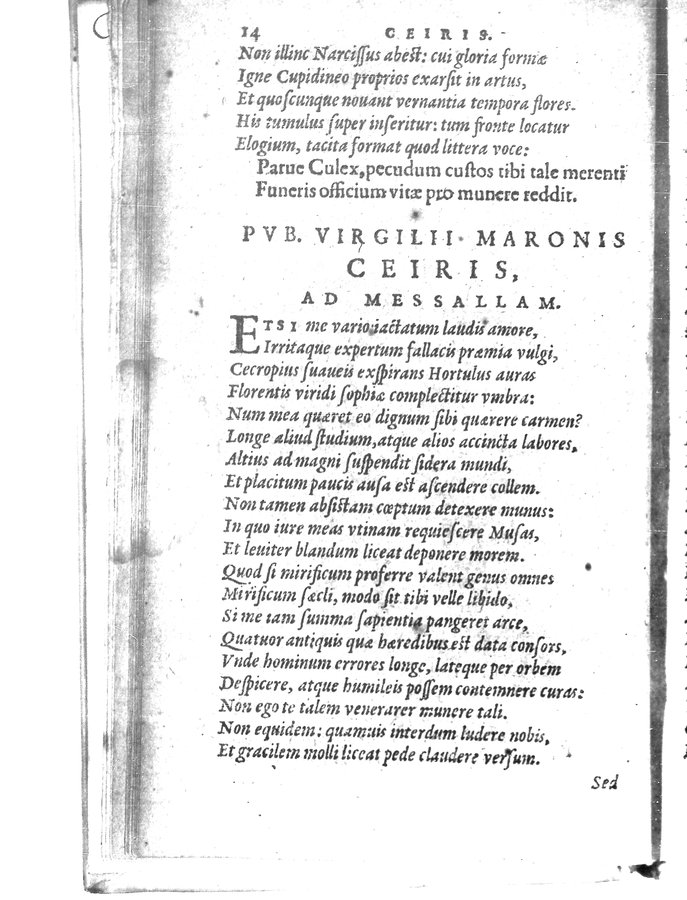 14 CEIRIS.
Non illinc Narciſſus abeſt: cui gloria formæ
Igne Cupidineo proprios exarſit in artus,
Et quoſcunque nouant vernantia tempora flores.
His tumulus ſuper inſeritur: tum fronte locatur
Elogium, tacita format quod littera voce:
Parue Culex, pecudum cuſtos tibi tale merenti
Funeris officium vitæ pro munere reddit.
PVB. VIRGILII MARONIS
CEIRIS,
AD MESSALLAM.
ETSI me vario iactatum laudis amore,
Irritaque expertum fallacis præmia vulgi,
Cecropius ſuaueis exſpirans Hortulus auras
Florentis viridi ſophiæ complectitur vmbra:
Num mea quæret eo dignum ſibi quærere carmen?
Longe aliud ſtudium, atque alios accincta labores,
Altius ad magni ſuſpendit ſidera mundi,
Et placitum paucis auſa eſt aſcendere collem.
Non tamen abſiſtam cœptum detexere munus:
In quo iure meas vtinam requieſcere Muſas,
Et leuiter blandum liceat deponere morem.
Quod ſi mirificum proferre valent genus omnes
Mirificum ſæcli, modo ſit tibi velle libido,
Si me iam ſumma ſapientia pangeret arce,
Quatuor antiquis quæ hæredibus eſt data conſors,
Vnde hominum errores longe, lateque per orbem
Deſpicere, atque humileis poſſem contemnere curas:
Non ego te talem venerarer munere tali.
Non equidem: quamuis interdum ludere nobis,
Et gracilem molli liceat pede claudere verſum.
Sed